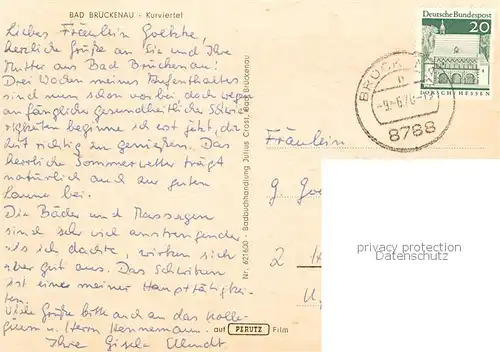 BAD BRÜCKENAU - Kurviertel
Liebes Fräulein Goethe,
herzliche Grüße an Sie und Ihre
Mutter aus Bad Brückenau!
Drei Wochen meines Aufenthaltes
sind nun schon vorbei doch wegen
anfänglicher gesundheitlicher Schwie-
rigkeiten beginne ich erst jetzt, die
Zeit richtig zu genießen. Das
herrliche Sommerwetter trägt
natürlich auch zur guten
Laune bei.
Die Bäder und Massagen
sind sehr viel anstrengender
als ich dachte, wirken sich
aber gut aus. Das Schwitzen
ist eine meiner Haupttätigkei-
ten.
Viele Grüße bitte auch an das Kolle-
gium u. Herrn Hennemann.
Ihre Gisela
auf PERUTZ Film
Nr. 621600 - Badbuchhandlung Julius Crost, Bad Brückenau
Deutsche Bundespost
20
LORSCH/HESSEN
BRÜCK
-9.-6.70-19
8788
Fräulein
G.
2
datenschutz PRIVACY protection
Datenschutz PRIVACY Protection